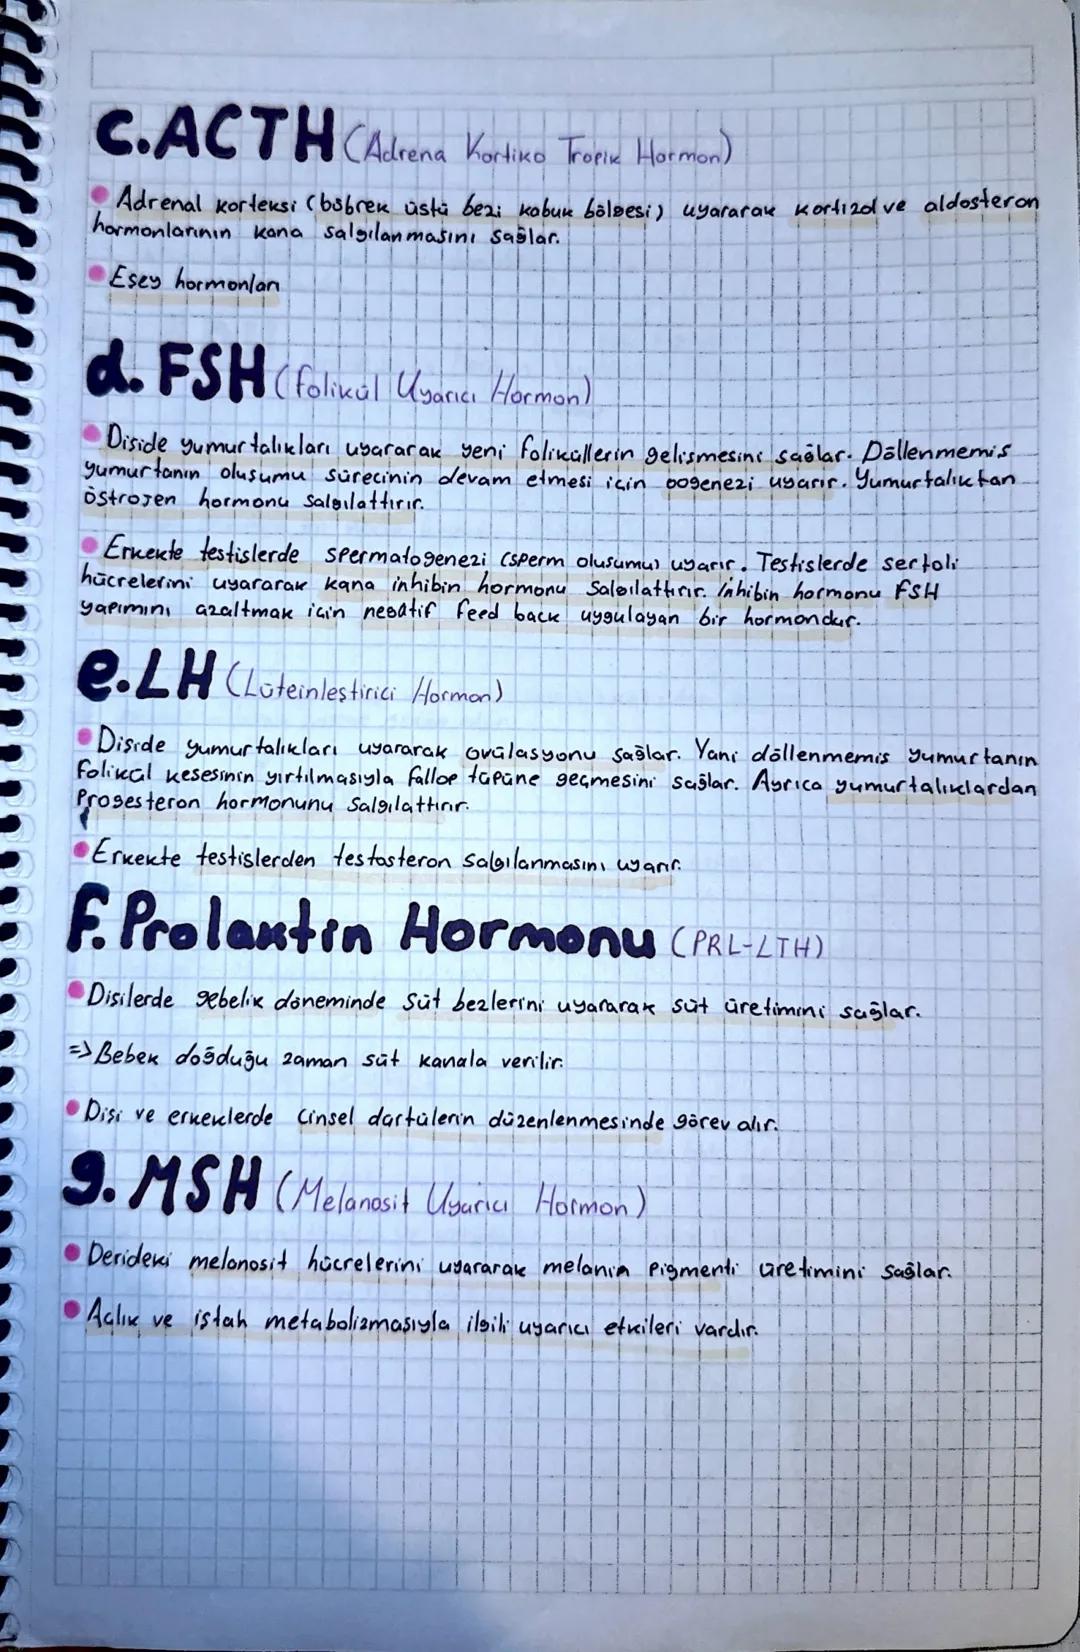 c.ACTH (Adrena Kortiko Tropik Hormon)
Adrenal korteksi (böbrek üstü bezi kabuk bölgesi) uyararak kortizol ve aldosteron
hormonlarının kana salgılanmasını sağlar.
Eşey hormonları
d. FSH (folikül Uyarıcı Hormon)
Dişide yumurtalıkları uyararak yeni foliküllerin gelişmesini sağlar. Döllenmemiş
yumurtanın oluşumu sürecinin devam etmesi için oogenezi uyarır. Yumurtalıktan
östrojen hormonu salgılattırır.
Erkekte testislerde spermatogenezi (sperm oluşumu) uyarır. Testislerde sertoli
hücrelerini uyararak kana inhibin hormonu salgılattırır. İnhibin hormonu FSH
yapımını azaltmak için negatif feed back uygulayan bir hormondur.
e.LH (Lüteinleştirici Hormon)
Dişide yumurtalıkları uyararak ovülasyonu sağlar. Yani döllenmemiş yumurtanın
folikül kesesinin yırtılmasıyla fallop tüpüne geçmesini sağlar. Ayrıca yumurtalıklardan
Progesteron hormonunu salgılattırır.
Erkekte testislerden testosteron salgılanmasını uyarır.
f. Prolaktin Hormonu (PRL-LTH)
Dişilerde gebelik döneminde süt bezlerini uyararak süt üretimini sağlar.
=> Bebek doğduğu zaman süt kanala verilir.
Dişi ve erkeklerde cinsel dürtülerin düzenlenmesinde görev alır.
g. MSH (Melanosit Uyarıcı Hormon)
Derideki melanosit hücrelerini uyararak melanin pigmenti üretimini sağlar.
Açlık ve iştah metabolizmasıyla ilgili uyarıcı etkileri vardır.